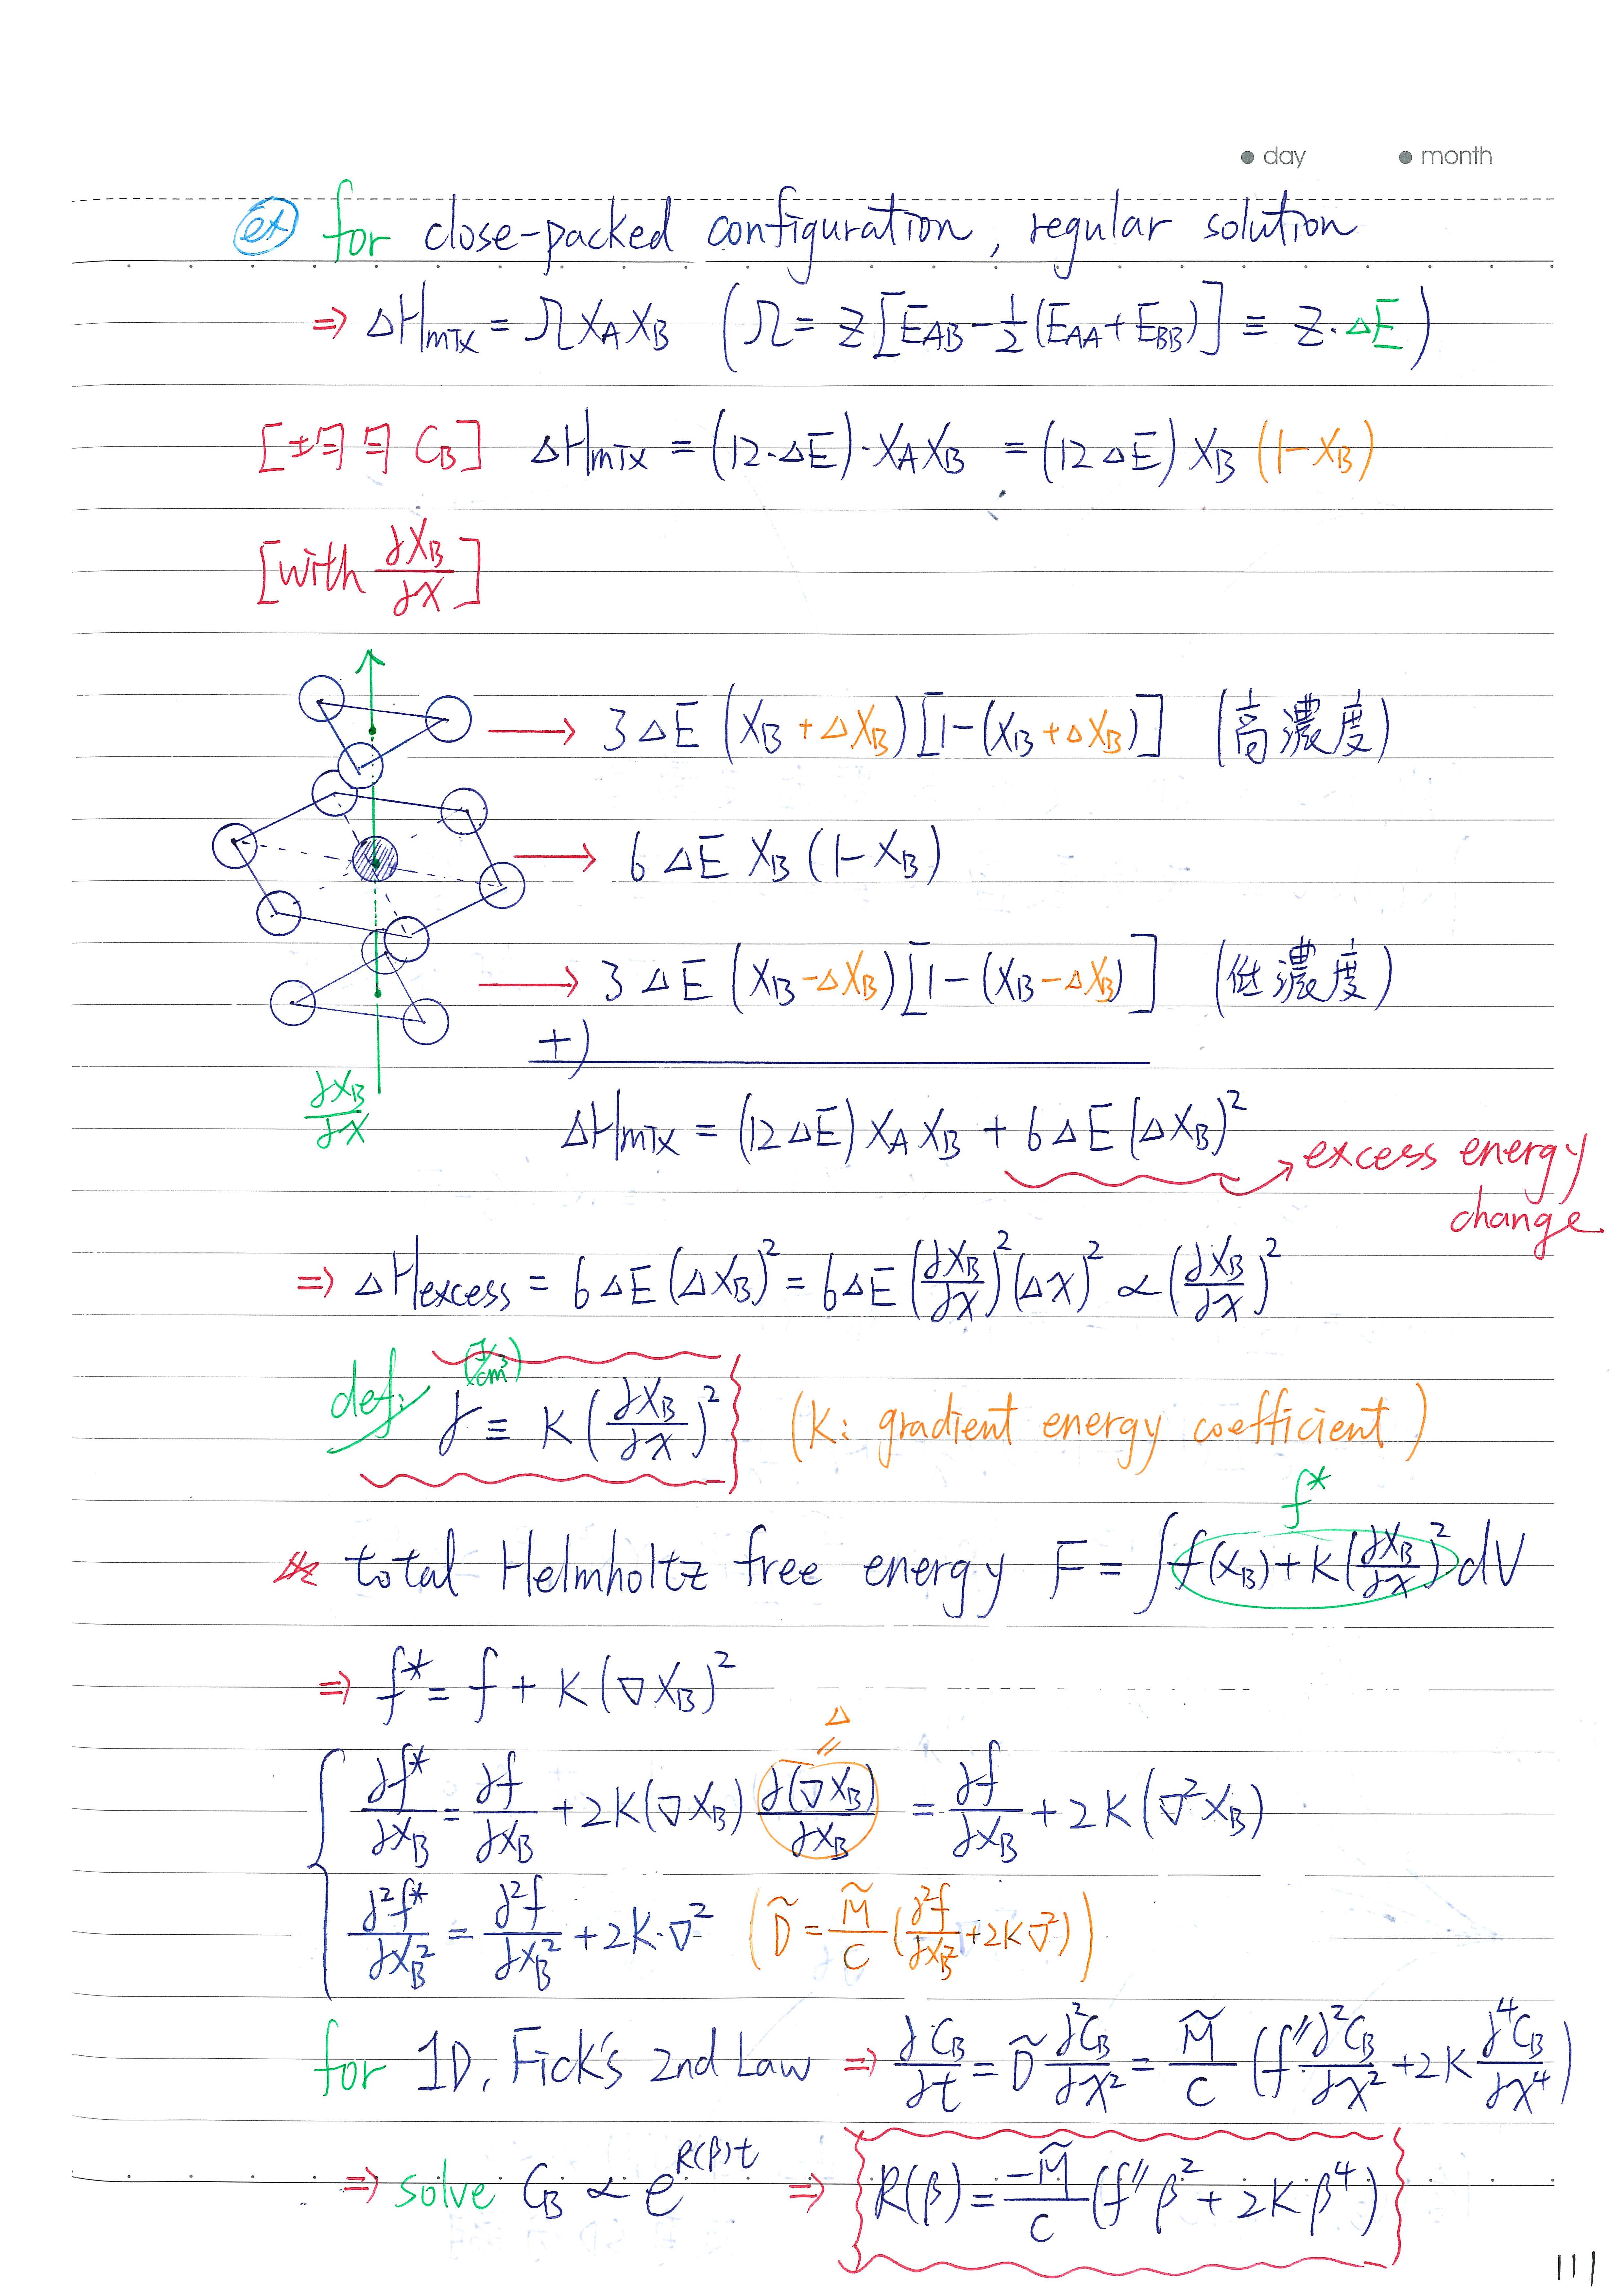 day month
ex for close-packed configuration, regular solution
⇒ ΔHmix = ΩXAXB (Ω = Z[EAB-½(EAA+EBB)] ≡ Z·ΔE)
[均勻 CB] ΔHmix = (12·ΔE)·XAXB = (12ΔE)XB(1-XB)
[with ∂XB/∂x]
→ 3ΔE(XB+ΔXB)[1-(XB+ΔXB)] (高濃度)
→ 6ΔE XB(1-XB)
→ 3ΔE(XB-ΔXB)[1-(XB-ΔXB)] (低濃度)
+)
∂XB/∂x
ΔHmix = (12ΔE)XAXB + 6ΔE(ΔXB)²
→ excess energy
change
⇒ ΔHexcess = 6ΔE(ΔXB)² = 6ΔE(∂XB/∂x)²(Δx)² ∝ (∂XB/∂x)²
(J/cm³)
def: γ ≡ K(∂XB/∂x)² (K: gradient energy coefficient)
f*
total Helmholtz free energy F = ∫f(XB)+K(∂XB/∂x)²dV
⇒ f* = f + K(∇XB)²
Δ
∂f*/∂XB = ∂f/∂XB + 2K(∇XB) ∂(∇XB)/∂XB = ∂f/∂XB + 2K(∇²XB)
∂²f*/∂XB² = ∂²f/∂XB² + 2K·∇² (D̃ = M̃/C (∂²f/∂XB² + 2K∇²))
for 1D, Fick's 2nd Law ⇒ ∂CB/∂t = D̃ ∂²CB/∂x² = M̃/C (f″ ∂²CB/∂x² + 2K ∂⁴CB/∂x⁴)
⇒ solve CB ∝ e^R(β)t ⇒ R(β) = -M̃/C (f″β² + 2Kβ⁴)
111